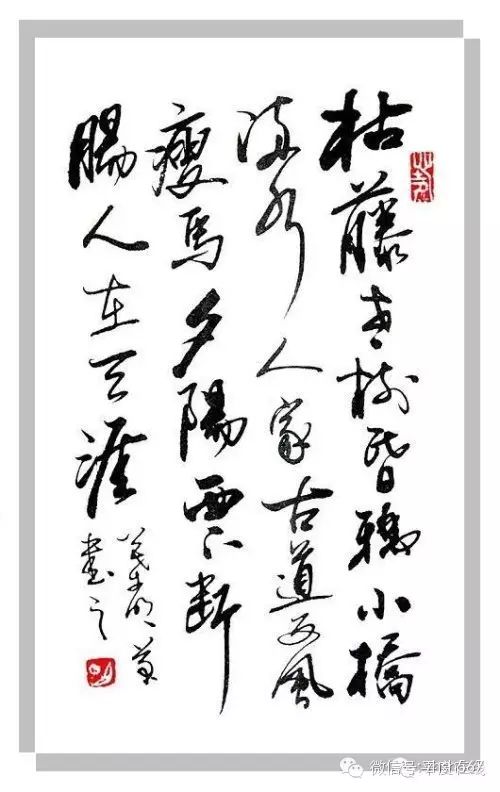 枯藤老樹昏鴉小橋
流水人家古道西風
瘦馬夕陽西下断
腸人在天涯
書之
微信号: